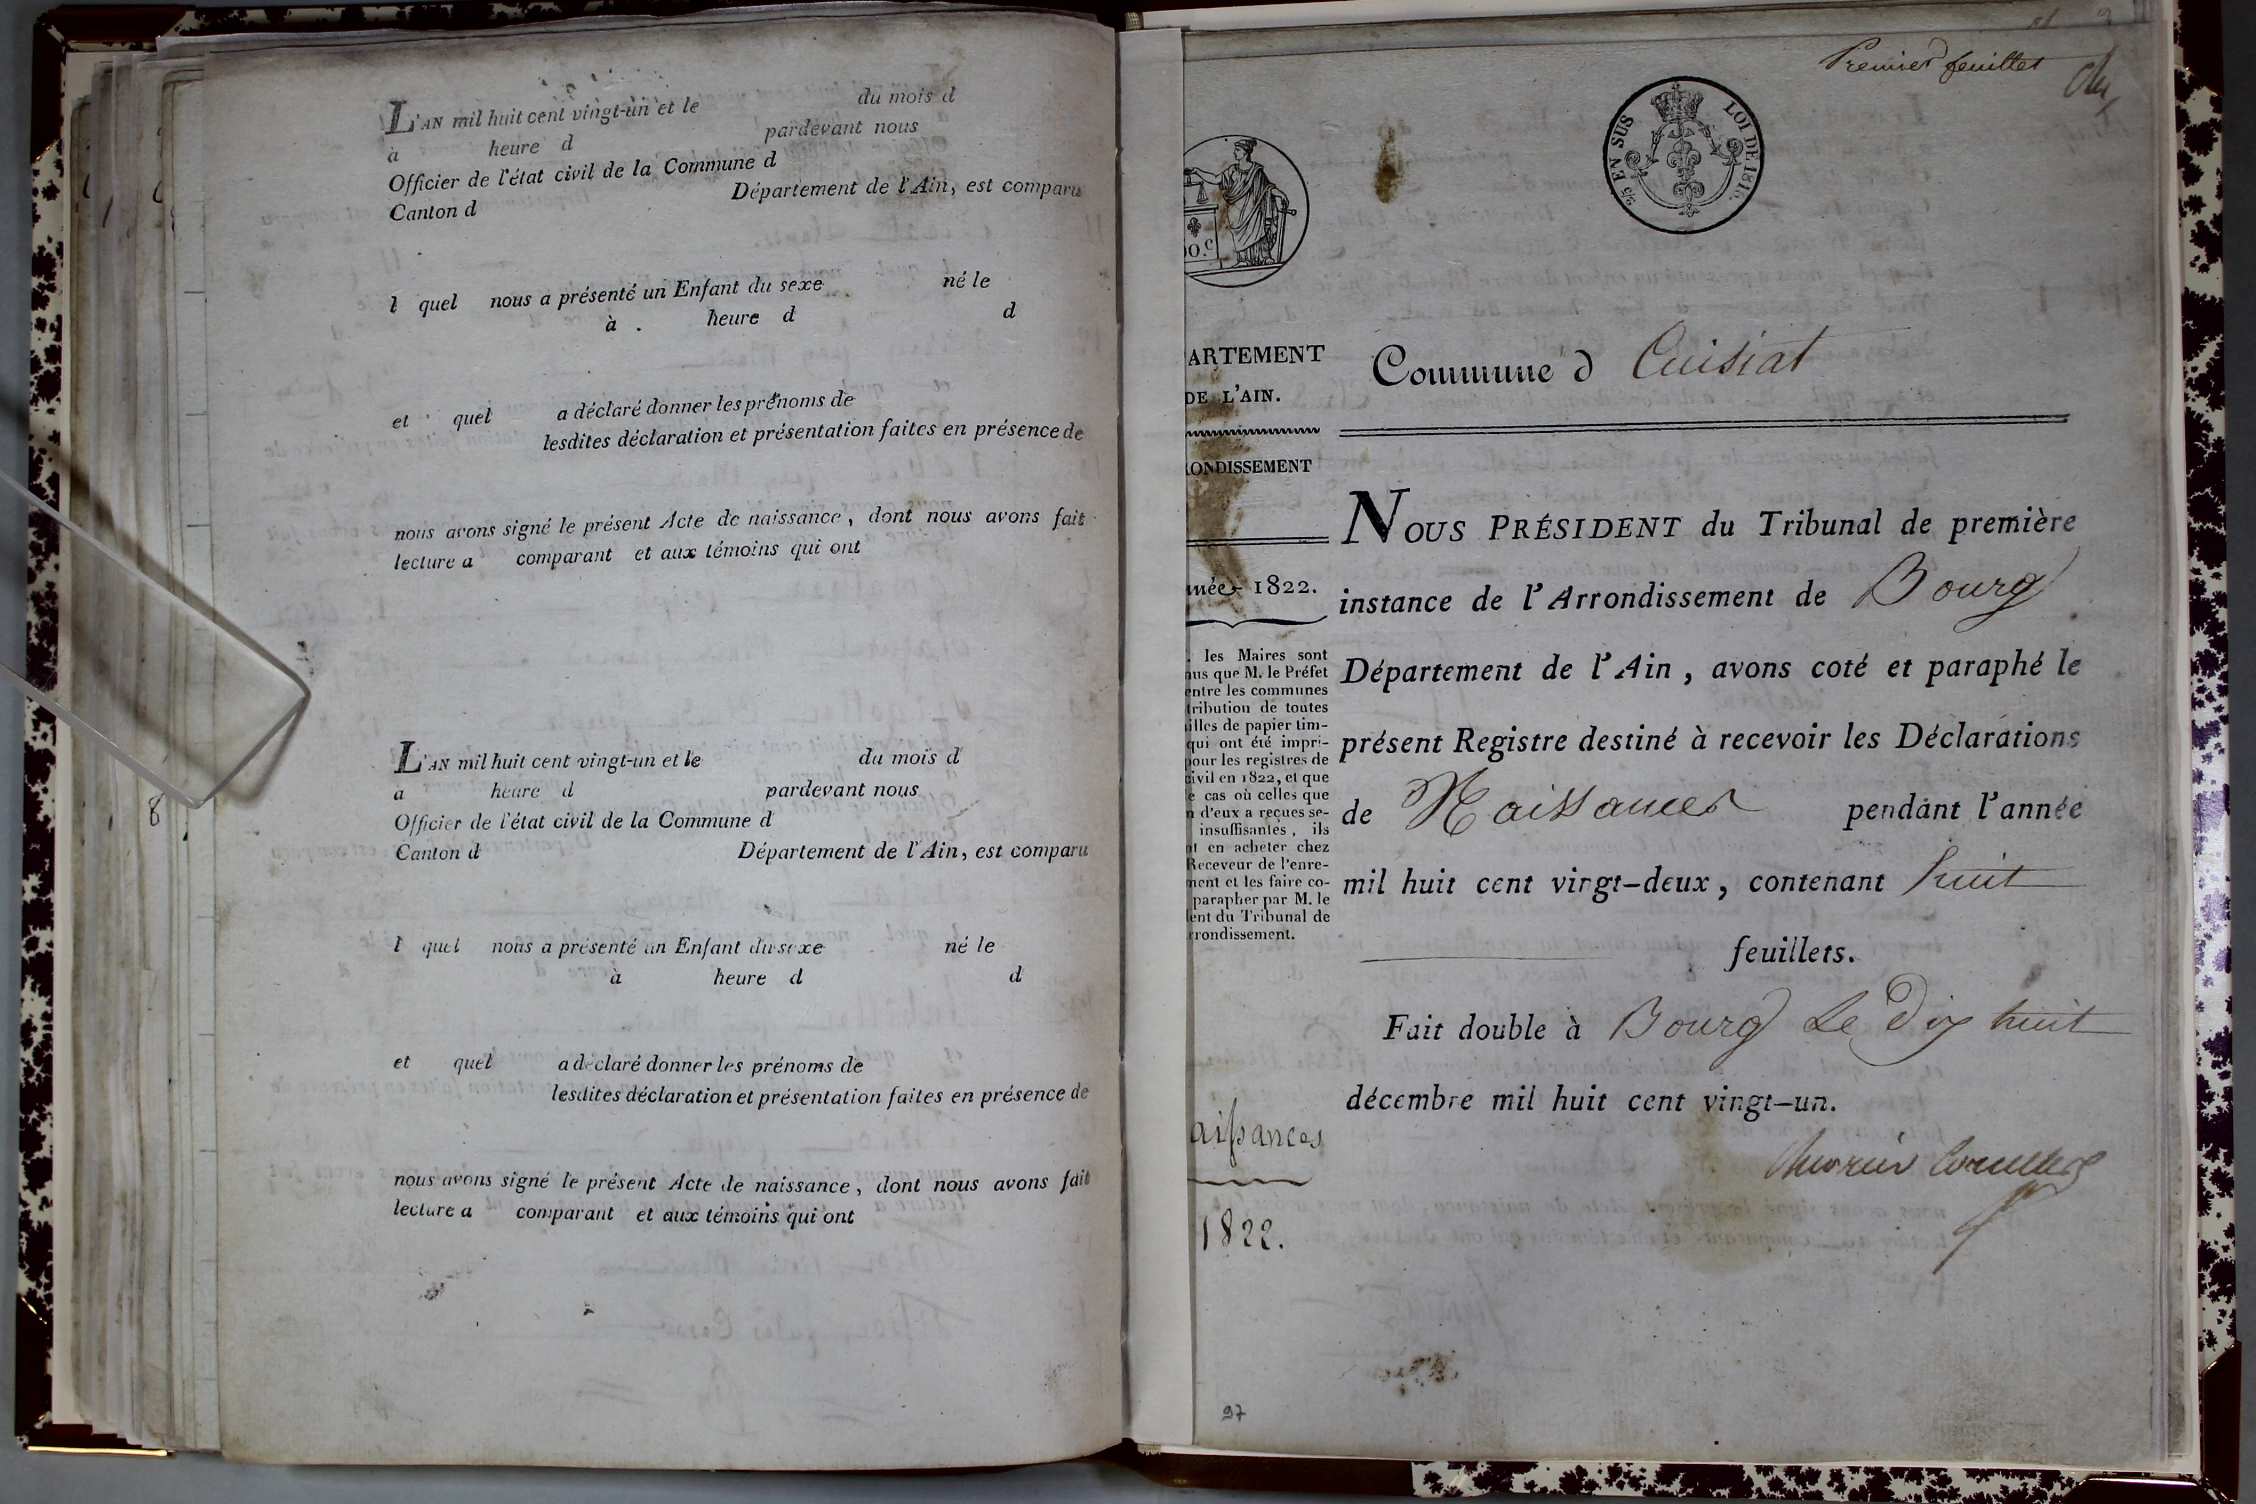 L'AN mil huit cent vingt-un et le du mois d
à heure d pardevant nous
Officier de l'état civil de la Commune d
Canton d Département de l'Ain, est comparu
l quel nous a présenté un Enfant du sexe né le
à heure d d
et quel a déclaré donner les prénoms de
lesdites déclaration et présentation faites en présence de
nous avons signé le présent Acte de naissance, dont nous avons fait
lecture a comparant et aux témoins qui ont
L'AN mil huit cent vingt-un et le du mois d
a heure d pardevant nous
Officier de l'état civil de la Commune d
Canton d Département de l'Ain, est comparu
l quel nous a présenté un Enfant du sexe né le
à heure d d
et quel a déclaré donner les prénoms de
lesdites déclaration et présentation faites en présence de
nous avons signé le présent Acte de naissance, dont nous avons fait
lecture a comparant et aux témoins qui ont
8
Premier feuillet
25 EN SUS LOI DE 1816.
00.c
ARTEMENT
DE L'AIN.
ONDISSEMENT
née 1822.
les Maires sont
us que M. le Préfet
entre les communes
tribution de toutes
illes de papier tim-
qui ont été impri-
pour les registres de
civil en 1822, et que
e cas où celles que
n d'eux a reçues se-
insuffisantes, ils
nt en acheter chez
Receveur de l'enre-
ment et les faire co-
parapher par M. le
ent du Tribunal de
rrondissement.
aissances
1822.
97
Commune d Cuisiat
NOUS PRÉSIDENT du Tribunal de première
instance de l'Arrondissement de Bourg
Département de l'Ain, avons coté et paraphé le
présent Registre destiné à recevoir les Déclarations
de Naissances pendant l'année
mil huit cent vingt-deux, contenant huit
feuillets.
Fait double à Bourg Le dix huit
décembre mil huit cent vingt-un.